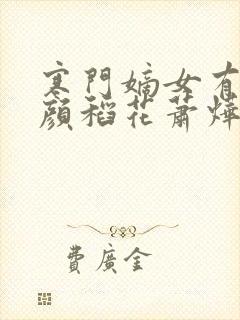 寒門嫡女有
顏稻花蕭燁
費廣金